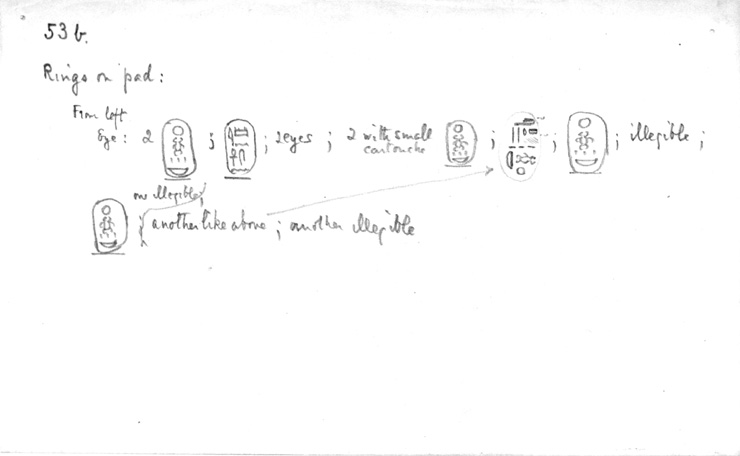 53 b.
Rings on pad:
From left
Eye: 2 ; ; 2 eyes ; 2 with small cartouche ; ; ; illegible ;
one illegible;
another like above ; another illegible